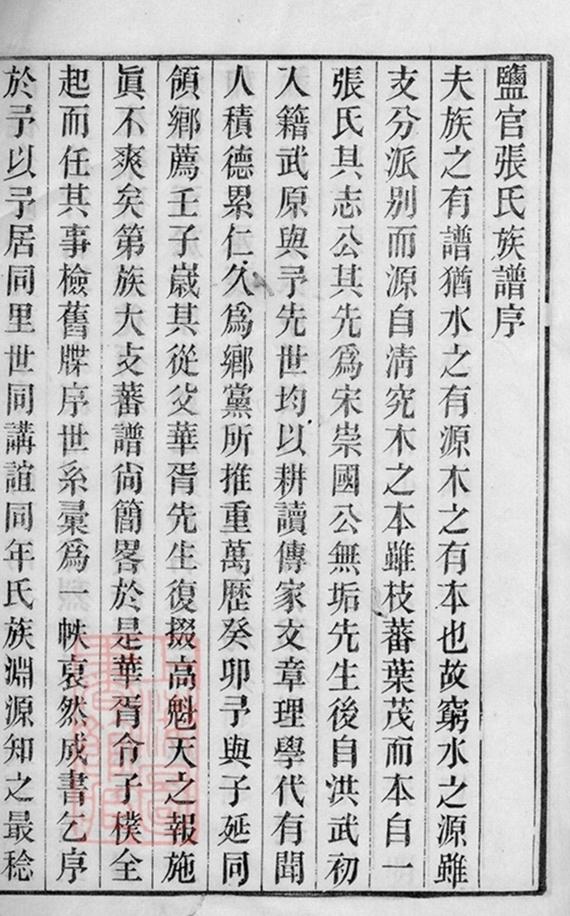 鹽官張氏族譜序
夫族之有譜猶水之有源木之有本也故窮水之源雖
支分派別而源自清究木之本雖枝蕃葉茂而本自一
張氏其志公其先爲宋崇國公無垢先生後自洪武初
入籍武原與予先世均以耕讀傳家文章理學代有聞
人積德累仁久爲鄉黨所推重萬歷癸卯予與子延同
領鄉薦壬子嵗其從父華胥先生復掇高魁天之報施
眞不爽矣第族大支蕃譜尙簡畧於是華胥令子樸全
起而任其事檢舊牒序世系彙爲一帙裒然成書乞序
於予以予居同里世同講誼同年氏族淵源知之最稔